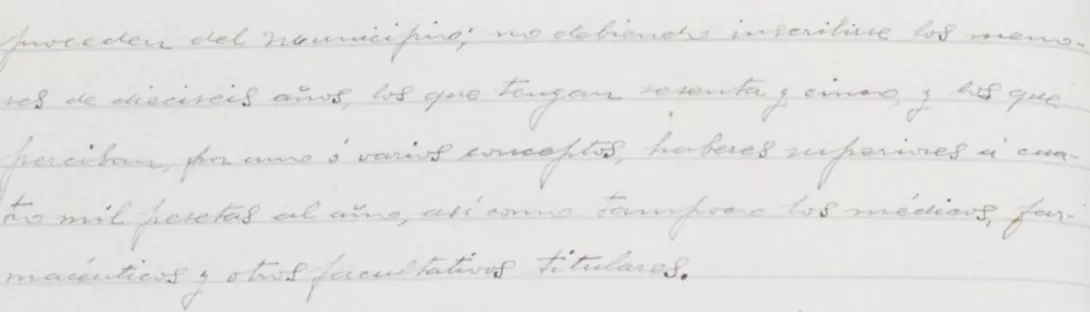 proceden del municipio; no debiendo inscribirse los meno-
res de dieciseis años, los que tengan sesenta y cinco, y los que
perciban, por uno ó varios conceptos, haberes superiores á cua-
tro mil pesetas al año, así como tampoco los médicos, far-
macéuticos y otros facultativos titulares.